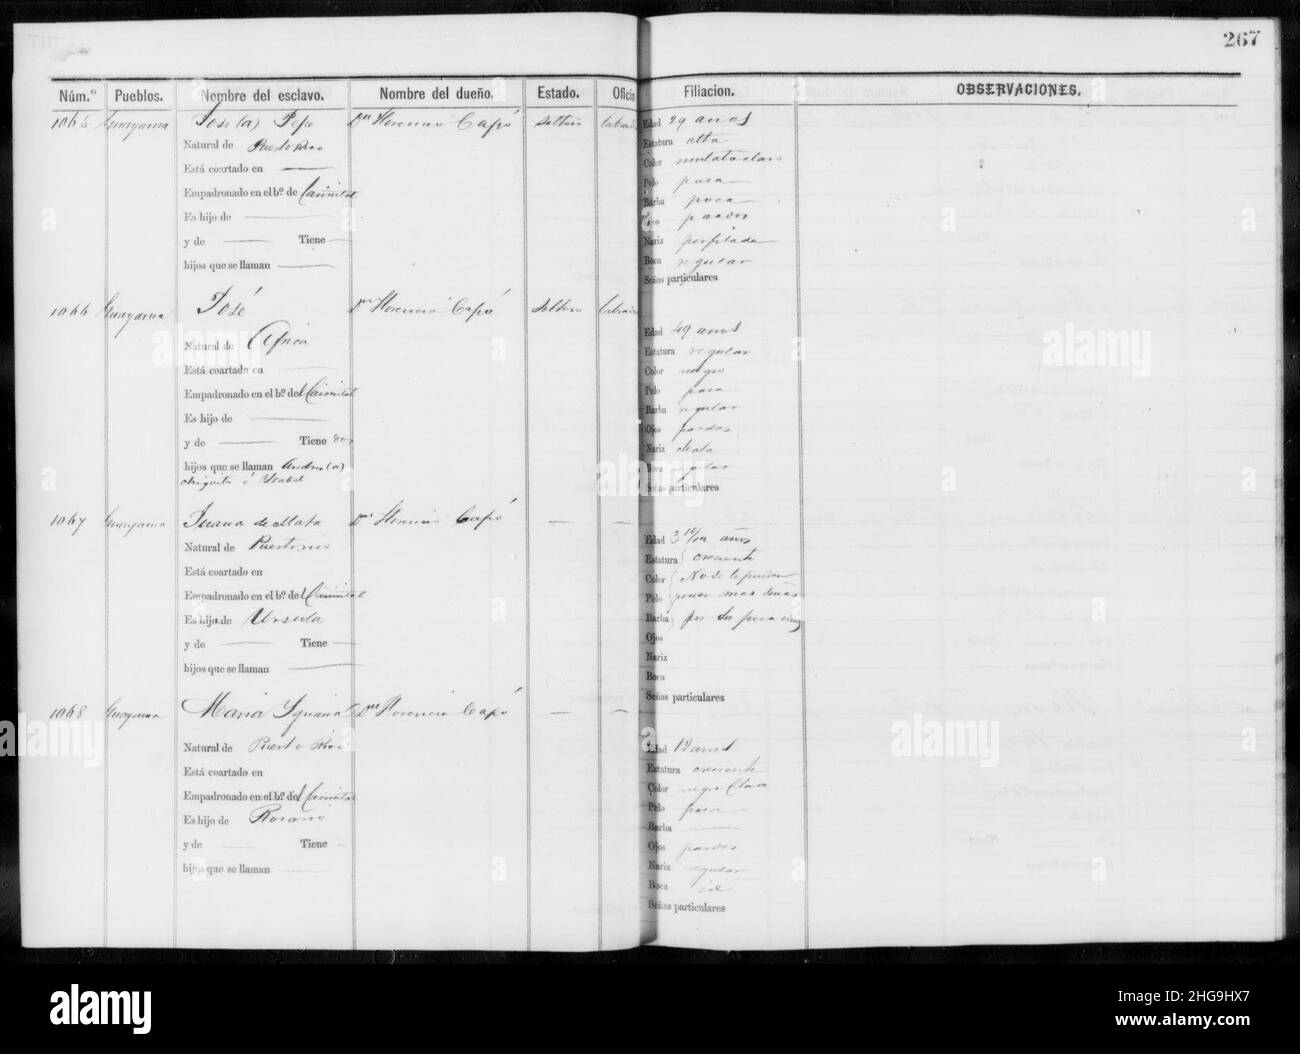 267
Núm.º Pueblos. Nombre del esclavo. Nombre del dueño. Estado. Oficio Filiacion. OBSERVACIONES.
1065 Guayama José (a) Pepe Dn Florencio Capó soltero labrador
Natural de Puerto Rico
Está coartado en —
Empadronado en el bº. de Caimital
Es hijo de —
y de — Tiene —
hijos que se llaman —
Edad 29 años
Estatura alta
Color mulato claro
Pelo pasa
Barba poca
Ojos pardos
Nariz perfilada
Boca regular
Señas particulares
1066 Guayama José Dn Florencio Capó soltero labrador
Natural de Africa
Está coartado en —
Empadronado en el bº. de Caimital
Es hijo de —
y de — Tiene dos
hijos que se llaman Andres (a)
chiquito é Ysabel
Edad 49 años
Estatura regular
Color negro
Pelo pasa
Barba regular
Ojos pardos
Nariz chata
Boca regular
Señas particulares
1067 Guayama Juana de Mata Dn Florencio Capó — —
Natural de Puerto rico
Está coartado en
Empadronado en el bº. de Caimital
Es hijo de Ursula
y de — Tiene —
hijos que se llaman —
Edad 3 10/12 años
Estatura creciente
Color No se le pueden
Pelo poner mas señas
Barba por su poca edad
Ojos
Nariz
Boca
Señas particulares
1068 Guayama Maria Ygnacia Dn Florencio Capó — —
Natural de Puerto Rico
Está coartado en
Empadronado en el bº. de Caimital
Es hijo de Rosario
y de — Tiene —
hijos que se llaman —
Edad 12 años
Estatura creciente
Color negro claro
Pelo pasa
Barba —
Ojos pardos
Nariz regular
Boca id
Señas particulares
alamy
Image ID: 2HG9HX7
www.alamy.com